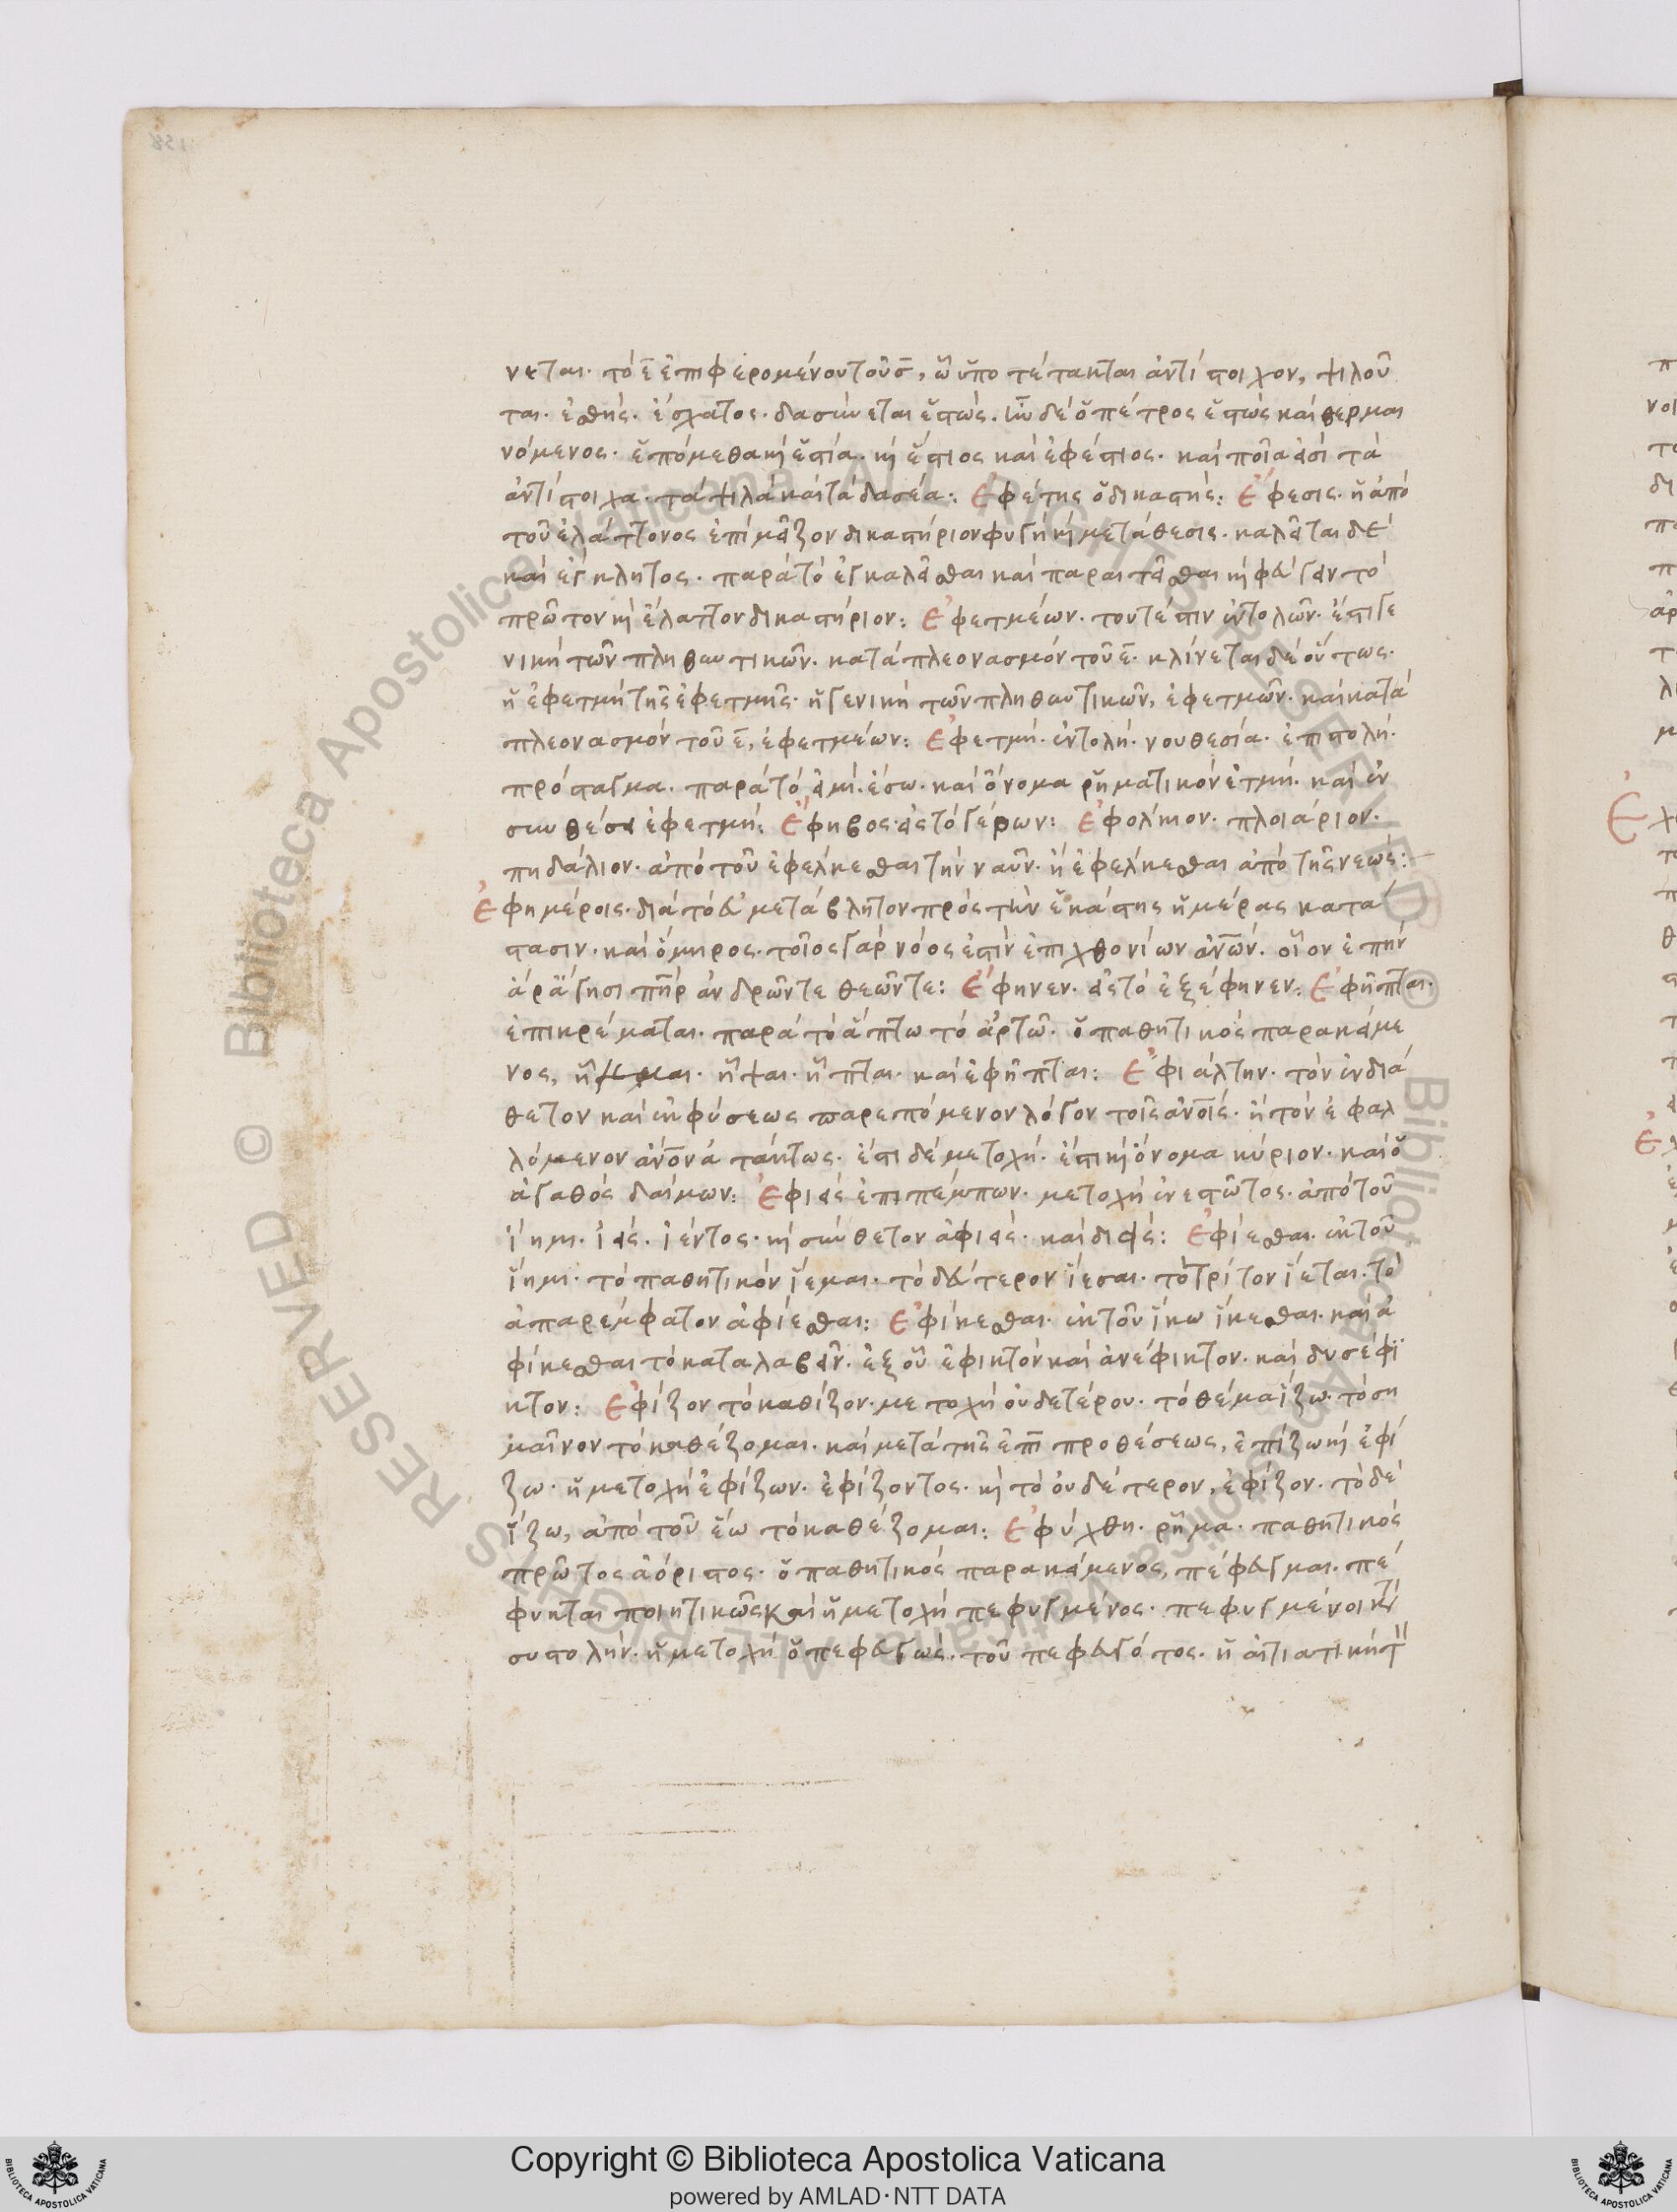 νεται· τὸ ε̄ ἐπιφερομένου τοῦ σ̄, ὧ ὑποτέτακται ἀντίστοιχον, ψιλοῦ
ται· ἐσθής· ἔσχατος· δασύνεται ἑστώς. ἦν δὲ ὁ πέτρος ἑστὼς καὶ θερμαι
νόμενος· ἑπόμεθα κὴ ἑστία· κὴ ἕστιος καὶ ἐφέστιος· καὶ ποῖα εἰσὶ τὰ
ἀντίστοιχα· τὰ ψιλὰ καὶ τὰ δασέα: Ἐφέτης ὁ δικαστής: Ἔφεσις· ἡ ἀπὸ
τοῦ ἐλάττονος ἐπὶ μεῖζον δικαστήριον φυγὴ κὴ μετάθεσις· καλεῖται δὲ
καὶ ἔγκλητος· παρὰ τὸ ἐγκαλεῖσθαι καὶ παραιτεῖσθαι κὴ φεύγειν τὸ
πρῶτον κὴ ἔλαττον δικαστήριον: Ἐφετμέων· τουτέστιν ἐντολῶν· ἔστι γε
νικὴ τῶν πληθυντικῶν· κατὰ πλεονασμὸν τοῦ ε̄· κλίνεται δὲ οὕτως·
ἡ ἐφετμὴ τῆς ἐφετμῆς· ἡ γενικὴ τῶν πληθυντικῶν, ἐφετμῶν· καὶ κατὰ
πλεονασμὸν τοῦ ε̄, ἐφετμέων: Ἐφετμή· ἐντολή· νουθεσία· ἐπιστολή·
πρόσταγμα· παρὰ τὸ εἰμί· ἔσω· καὶ ὄνομα ῥηματικὸν ἑτμή· καὶ ἐν
συνθέσει ἐφετμή: Ἔφηβος· εἰς τὸ γέρων: Ἐφόλκιον· πλοιάριον·
πηδάλιον· ἀπὸ τοῦ ἐφέλκεσθαι τὴν ναῦν· ἢ ἐφέλκεσθαι ἀπὸ τῆς νεώς:
Ἐφημέροις· διὰ τὸ εὐμετάβλητον πρὸς τὴν ἑκάστης ἡμέρας κατά
στασιν· καὶ ὅμηρος· τοῖος γὰρ νόος ἐστὶν ἐπιχθονίων ἀν̅ων. οἷον ἐπ' ἦν
ἀράγησι πη̅ρ ἀνδρῶν τε θεῶν τε: Ἔφηνεν· εἰς τὸ ἐξέφηνεν: Ἐφῆπται·
ἐπικρέμαται· παρὰ τὸ ἅπτω τὸ ἀρτῶ· ὁ παθητικὸς παρακείμε
νος, ἧμμαι· ἧψαι· ἧπται· καὶ ἐφῆπται: Ἐφιάλτην· τὸν ἐνδιά
θετον καὶ ἐκ φύσεως παρεπόμενον λόγον τοῖς ἀν̅οις· ἢ τὸν ἐφαλ
λόμενον ἀν̅ον ἀτάκτως· ἔστι δὲ μετοχή· ἔστι κὴ ὄνομα κύριον· καὶ ὁ
ἀγαθὸς δαίμων: Ἐφιεὶς ἐπιπέμπων· μετοχὴ ἐνεστῶτος· ἀπὸ τοῦ
ἵημι· ἱείς· ἱέντος· κὴ σύνθετον ἀφιείς· καὶ διείς: Ἐφίεσθαι· ἐκ τοῦ
ἵημι· τὸ παθητικὸν ἵεμαι· τὸ δεύτερον ἵεσαι· τὸ τρίτον ἵεται· τὸ
ἀπαρέμφατον ἀφίεσθαι: Ἐφίκεσθαι· ἐκ τοῦ ἵκω ἵκεσθαι· καὶ ἀ
φίκεσθαι τὸ καταλαβεῖν· ἐξ οὗ ἐφικτὸν καὶ ἀνέφικτον· καὶ δυσέφι
κτον: Ἐφίζον τὸ καθίζον· μετοχὴ οὐδετέρου· τὸ θέμα ἵζω· τὸ ση
μαῖνον τὸ καθέζομαι· καὶ μετὰ τῆς ἐπὶ προθέσεως, ἐπίζω κὴ ἐφί
ζω· ἡ μετοχὴ ἐφίζων· ἐφίζοντος· κὴ τὸ οὐδέτερον, ἐφίζον· τὸ δὲ
ἵζω, ἀπὸ τοῦ ἕω τὸ καθέζομαι: Ἐφύχθη· ῥῆμα· παθητικὸς
πρῶτος ἀόριστος· ὁ παθητικὸς παρακείμενος, πέφευγμαι· πέ
φυκται ποιητικῶς καὶ ἡ μετοχὴ πεφυγμένος· πεφυγμένοι κτ
συστολήν· ἡ μετοχὴ ὁ πεφευγώς· τοῦ πεφευγότος· ἡ αἰτιατικὴ τ